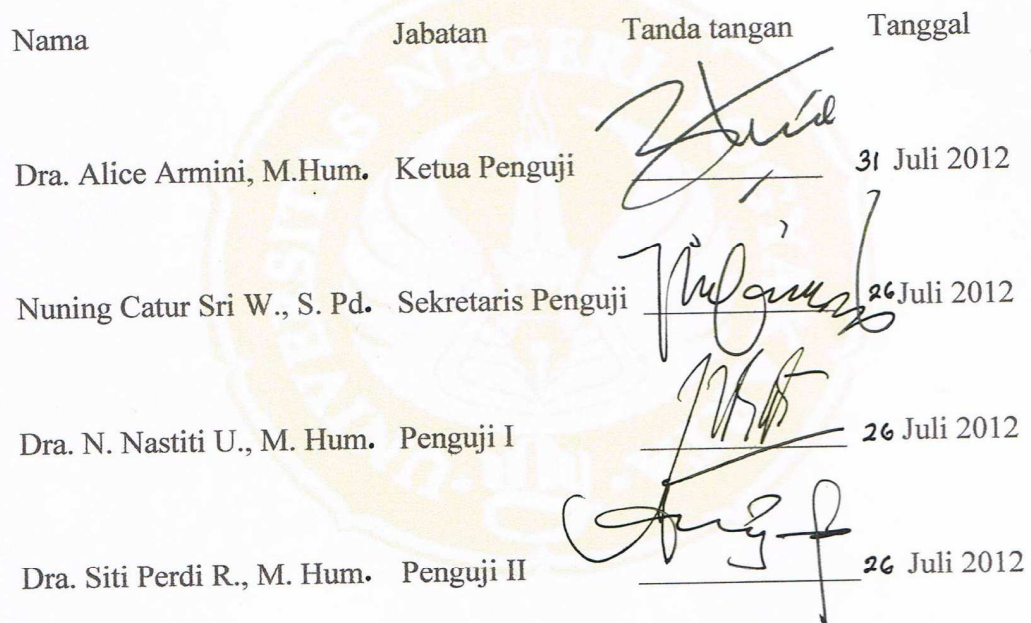 Nama Jabatan Tanda tangan Tanggal
Dra. Alice Armini, M.Hum. Ketua Penguji 31 Juli 2012
Nuning Catur Sri W., S. Pd. Sekretaris Penguji 26 Juli 2012
Dra. N. Nastiti U., M. Hum. Penguji I 26 Juli 2012
Dra. Siti Perdi R., M. Hum. Penguji II 26 Juli 2012
UNIVERSITAS NEGERI YOGYAKARTA